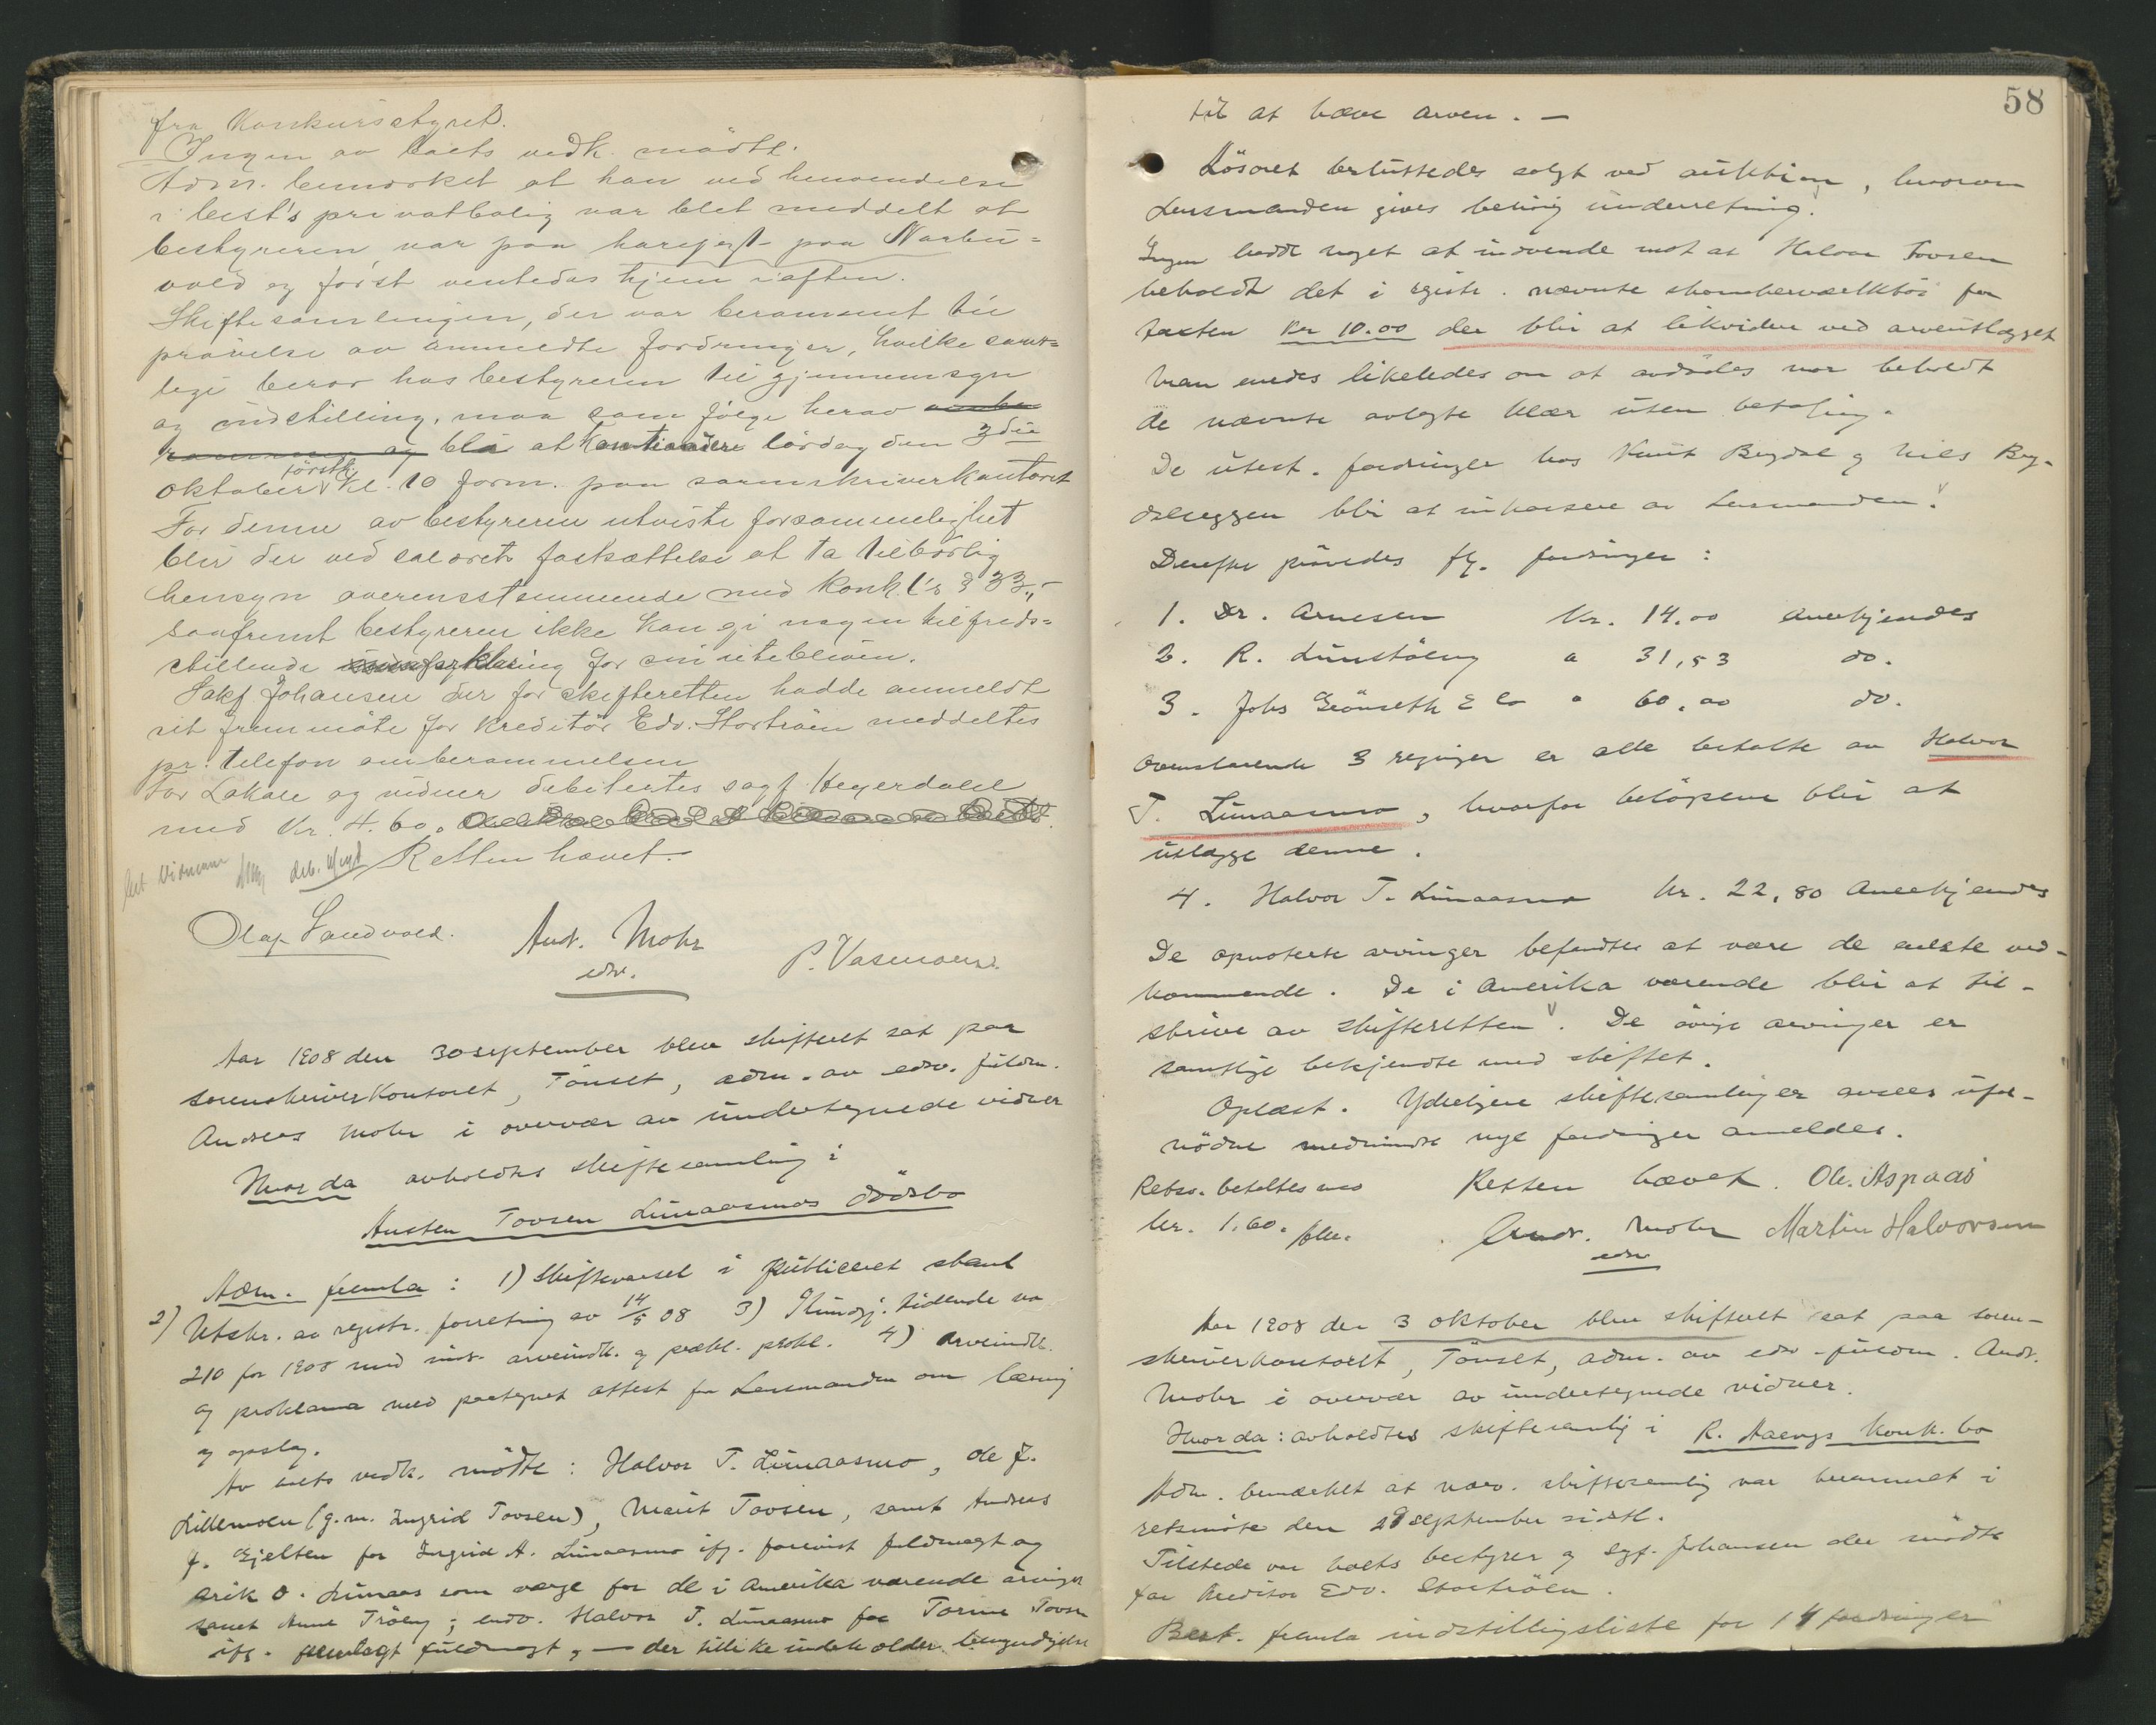 fra Konkursstyret.
Ingen av boets vedk. mødte.
Adm. bemerket at han ved henvendelse
i best's privatbolig var blet meddelt at
bestyreren var paa harejagt paa Narbu-
vold og først ventedes hjem iaften.
Skiftesamlingen, der var berammet til
prøvelse av anmeldte fordringer, hvilke samt-
lige beror hos bestyreren til gjennemsyn
og indstilling, maa som følge herav
og bli at kontinuere lørdag den 3die
oktober førstk. kl. 10 form. paa sorenskriverkontoret
For denne av bestyreren utviste forsømmelighet
blir der ved salærets fastsættelse at ta tilbørlig
hensyn overensstemmende med Konk.l's § 33,-
saafremt bestyreren ikke kan gi nogen tilfreds-
stillende forklaring for sin utebliven.
Sakf. Johansen der for skifteretten hadde anmeldt
sit fremmøte for kreditor Edv. Stortrøen meddeltes
pr. telefon omberammelsen
For Lokale og vidner debitertes sagf. Heyerdahl
med Kr. 4.60.
Retten hævet.
Olaf Sandvold. Andr. Mohr P. Vasmoen.
edsv.
Aar 1908 den 30 september blev skifteret sat paa
sorenskriverkontoret, Tønset, adm. av edsv. fuldm.
Andreas Mohr i overvær av undertegnede vidner
Hvorda avholdtes skiftesamling i
Austen Tovsen Limaasmos dødsbo
Adm. fremla: 1) Skiftevarsel i publiceret stand
2) Utskr. av registr. forretning av 14/5 08 3) Kundgj. tidende no
210 for 1908 med indr. arveindk. og prækl. prokl. 4) Arveindk.
og proklama med paategnet attest fra Lensmanden om læsning
og opslag.
Av boets vedk. mødte: Halvor T. Limaasmo, Ole J.
Lillemoen (g.m. Ingrid Tovsen), Marit Tovsen, samt Andreas
J. Gjelten for Ingrid A. Limaasmo ifg. forevist fuldmagt og
Erik O. Limaas som værge for de i Amerika værende arvinger
samt Anne Trøen; endv. Halvor T. Limaasmo for Torine Tovsen
ifg. fremlagt fuldmagt, — der tillike indeholder bemyndigelse
58
til at hæve arven. —
Løsøret besluttedes solgt ved auktion, hvorom
Lensmanden gives behørig underretning.
Ingen hadde noget at indvende mot at Halvor Tovsen
beholdt det i registr. nævnte skomakerværktøi for
taksten Kr 10.00 der blir at likvidere ved arveutlægget
Man enedes likeledes om at avdødes mor beholdt
de nævnte avlagte klær uten betaling.
De utest. fordringer hos Knut Brydal og Nils Bry-
dalseggen blir at inkassere av Lensmanden.
Derefter prøvedes flg. fordringer:
1. Dr. Arnesen Kr. 14.00 anerkjendes
2. R. Limstøeng " 31,53 do.
3. Johs Grønseth & Co " 60.00 do.
Ovenstaaende 3 regninger er alle betalte av Halvor
T. Limaasmo, hvorfor beløpene blir at
utlægge denne.
4. Halvor T. Limaasmo Kr. 22,80 Anerkjendes
De opnoterte arvinger befandtes at være de eneste ved-
kommende. De i Amerika værende blir at til-
skrive av skifteretten. De øvrige arvinger er
samtlige bekjendte med skiftet.
Oplæst. Yderligere skiftesamlinger ansees ufor-
nødne medmindre nye fordringer anmeldes.
Rekv. betaltes med Retten hævet. Ole Aspaas
kr. 1.60. Andr. Mohr Martin Halvorsen
edsv
Aar 1908 den 3 oktober blev skifteret sat paa soren-
skriverkontoret, Tønset, adm. av edsv. fuldm. Andr.
Mohr i overvær av undertegnede vidner.
Hvorda: avholdtes skiftesamling i R. Aaengs konk.bo
Adm. bemerket at nærv. skiftesamling var berammet i
retsmøte den 28 september sidstl.
Tilstede var boets bestyrer og sagf. Johansen der mødte
for kreditor Edv. Stortrøen.
Best. fremla indstillingsliste for 14 fordringer